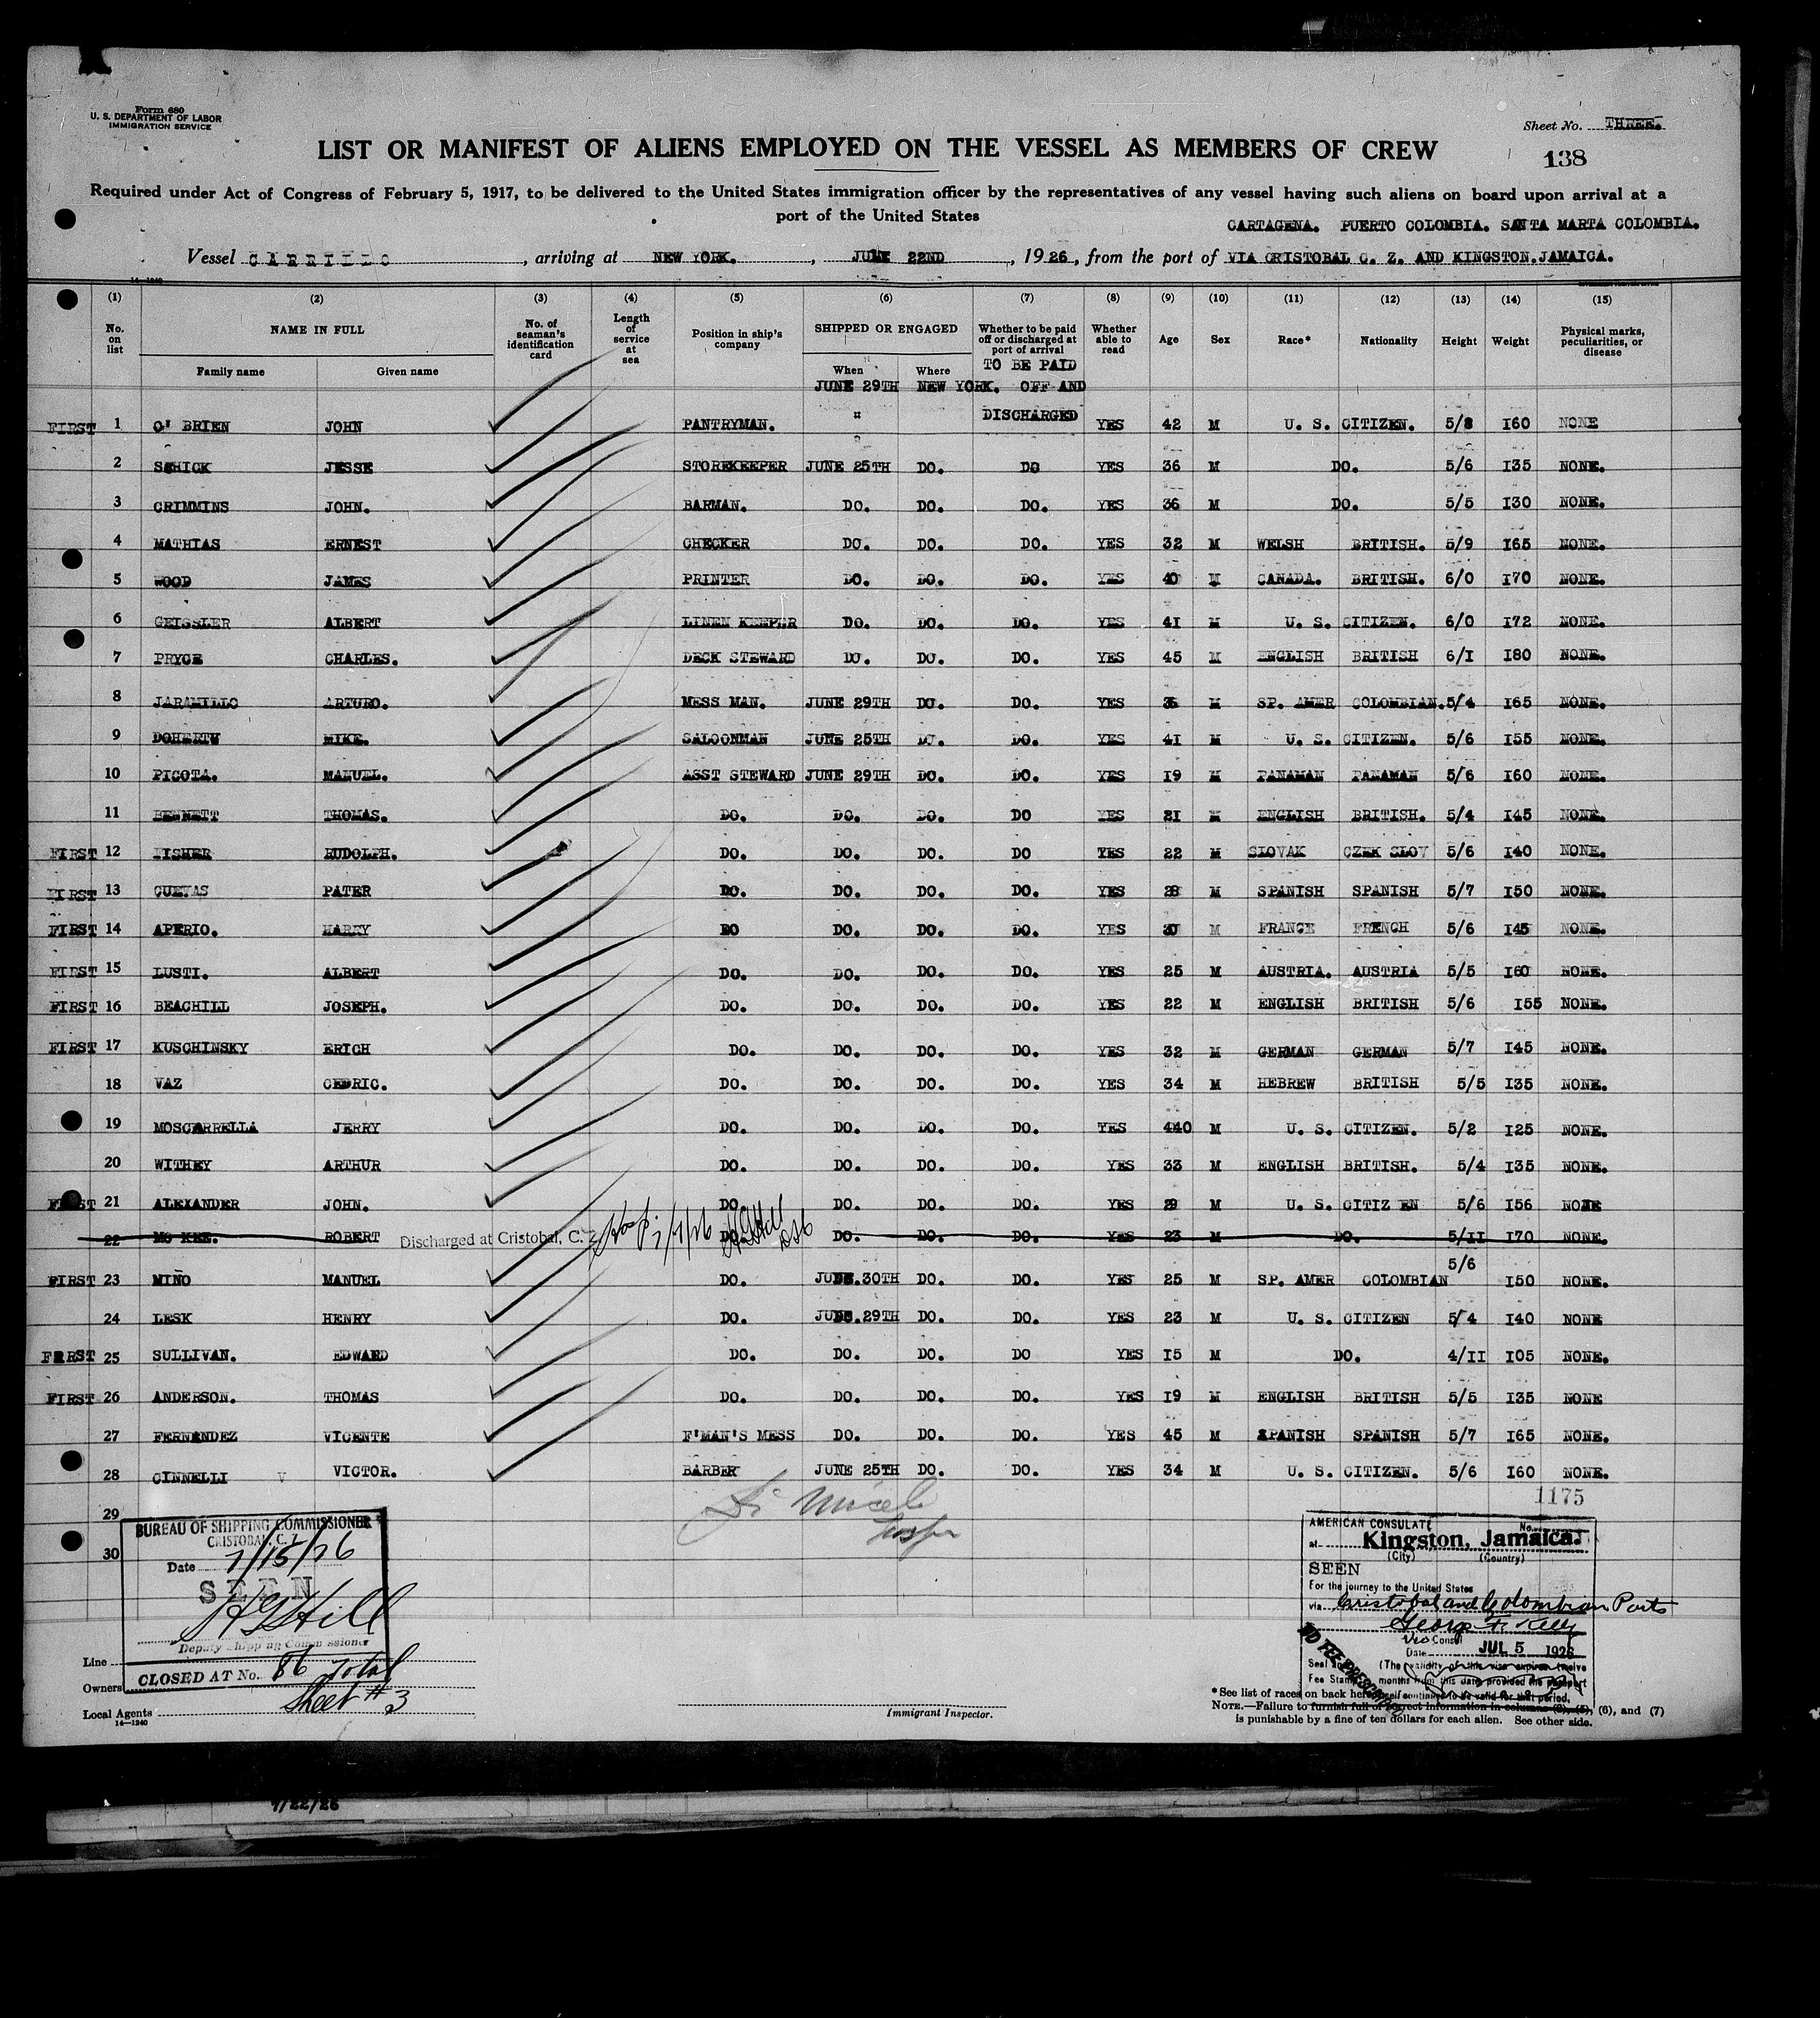 Form 680
U. S. DEPARTMENT OF LABOR
IMMIGRATION SERVICE
Sheet No. THREE.
LIST OR MANIFEST OF ALIENS EMPLOYED ON THE VESSEL AS MEMBERS OF CREW
138
Required under Act of Congress of February 5, 1917, to be delivered to the United States immigration officer by the representatives of any vessel having such aliens on board upon arrival at a
port of the United States
CARTAGENA. PUERTO COLOMBIA. SANTA MARTA COLOMBIA.
Vessel CARRILLO, arriving at NEW YORK., 22ND, 1926, from the port of VIA CRISTOBAL C. Z. AND KINGSTON.JAMAICA.
14-1240
(1) (2) (3) (4) (5) (6) (7) (8) (9) (10) (11) (12) (13) (14) (15)
No. on list NAME IN FULL No. of seaman's identification card Length of service at sea Position in ship's company SHIPPED OR ENGAGED Whether to be paid off or discharged at port of arrival Whether able to read Age Sex Race* Nationality Height Weight Physical marks, peculiarities, or disease
Family name Given name When Where TO BE PAID
JUNE 29TH NEW YORK. OFF AND
FIRST 1 O' BRIEN JOHN PANTRYMAN. " DISCHARGED YES 42 M U. S. CITIZEN. 5/8 160 NONE
2 SCHICK JESSE STOREKEEPER JUNE 25TH DO. DO YES 36 M DO. 5/6 135 NONE.
3 CRIMMINS JOHN. BARMAN. DO. DO. DO. YES 36 M DO. 5/5 130 NONE.
4 MATHIAS ERNEST CHECKER DO. DO. DO. YES 32 M WELSH BRITISH. 5/9 165 NONE.
5 WOOD JAMES PRINTER DO. DO. DO. YES 40 M CANADA. BRITISH. 6/0 170 NONE.
6 GEISSLER ALBERT LINEN KEEPER DO. DO. DO. YES 41 M U. S. CITIZEN. 6/0 172 NONE.
7 PRYCE CHARLES. DECK STEWARD DO. DO. DO. YES 45 M ENGLISH BRITISH 6/1 180 NONE.
8 JARAMILLO ARTURO. MESS MAN. JUNE 29TH DO. DO. YES 36 M SP. AMER COLOMBIAN. 5/4 165 NONE.
9 DOHERTY MIKE. SALOONMAN JUNE 25TH DO. DO. YES 41 M U. S. CITIZEN. 5/6 155 NONE.
10 PICOTA. MANUEL. ASST STEWARD JUNE 29TH DO. DO. YES 19 M PANAMAN PANAMAN 5/6 160 NONE.
11 BENNETT THOMAS. DO. DO. DO. DO YES 21 M ENGLISH BRITISH. 5/4 145 NONE.
FIRST 12 FISHER RUDOLPH. DO. DO. DO. DO YES 22 M SLOVAK CZEK SLOV 5/6 140 NONE.
FIRST 13 CUEVAS PATER DO. DO. DO. DO. YES 28 M SPANISH SPANISH 5/7 150 NONE.
FIRST 14 APERIO. HARRY DO DO. DO. DO. YES 30 M FRANCE FRENCH 5/6 145 NONE.
FIRST 15 LUSTI. ALBERT DO. DO. DO. DO. YES 25 M AUSTRIA. AUSTRIA 5/5 160 NONE.
FIRST 16 BEACHILL JOSEPH. DO. DO. DO. DO. YES 22 M ENGLISH BRITISH 5/6 155 NONE.
FIRST 17 KUSCHINSKY ERICH DO. DO. DO. DO. YES 32 M GERMAN GERMAN 5/7 145 NONE.
18 VAZ CEDRIC. DO. DO. DO. DO. YES 34 M HEBREW BRITISH 5/5 135 NONE.
19 MOSCARRELLA JERRY DO. DO. DO. DO. YES 440 M U. S. CITIZEN. 5/2 125 NONE.
20 WITHEY ARTHUR DO. DO. DO. DO. YES 33 M ENGLISH BRITISH. 5/4 135 NONE.
FIRST 21 ALEXANDER JOHN. DO. DO. DO. DO. YES 29 M U. S. CITIZ EN 5/6 156 NONE
22 MC KEE. ROBERT Discharged at Cristobal, C. Z. DO. DO. DO. DO. YES 23 M DO. 5/11 170 NONE.
5/6
FIRST 23 NINO MANUEL DO. 30TH DO. DO. YES 25 M SP. AMER COLOMBIAN 150 NONE.
24 LESK HENRY DO. 29TH DO. DO. YES 23 M U. S. CITIZEN 5/4 140 NONE
FIRST 25 SULLIVAN. EDWARD DO. DO. DO. DO YES 15 M DO. 4/11 105 NONE.
FIRST 26 ANDERSON. THOMAS DO. DO. DO. DO. YES 19 M ENGLISH BRITISH 5/5 135 NONE
27 FERNANDEZ VICENTE F'MAN'S MESS DO. DO. DO. YES 45 M SPANISH SPANISH 5/7 165 NONE.
28 CINNELLI V VICTOR. BARBER JUNE 25TH DO. DO. YES 34 M U. S. CITIZEN. 5/6 160 NONE.
1175
29
30
BUREAU OF SHIPPING COMMISSIONER
CRISTOBAL, C. Z.
Date 7/15/26
SEEN
H G Hill
Deputy Shipping Commissioner
CLOSED AT No. 86 Total
Sheet # 3
Line
Owners
Local Agents
14-1240
Immigrant Inspector.
AMERICAN CONSULATE No.
at Kingston, Jamaica.
(City) (Country)
SEEN
For the journey to the United States
via Cristobal and Colombian Ports
George F. Kelly
Vice Consul
Date JUL 5 1926
NO FEE PRESCRIBED
(The validity of this visa expires twelve
months from this date provided the passport
continues to be valid for that period.
*See list of races on back hereof
NOTE.—Failure to furnish full or correct information in columns (3), (5), (6), and (7)
is punishable by a fine of ten dollars for each alien. See other side.
7/22/26